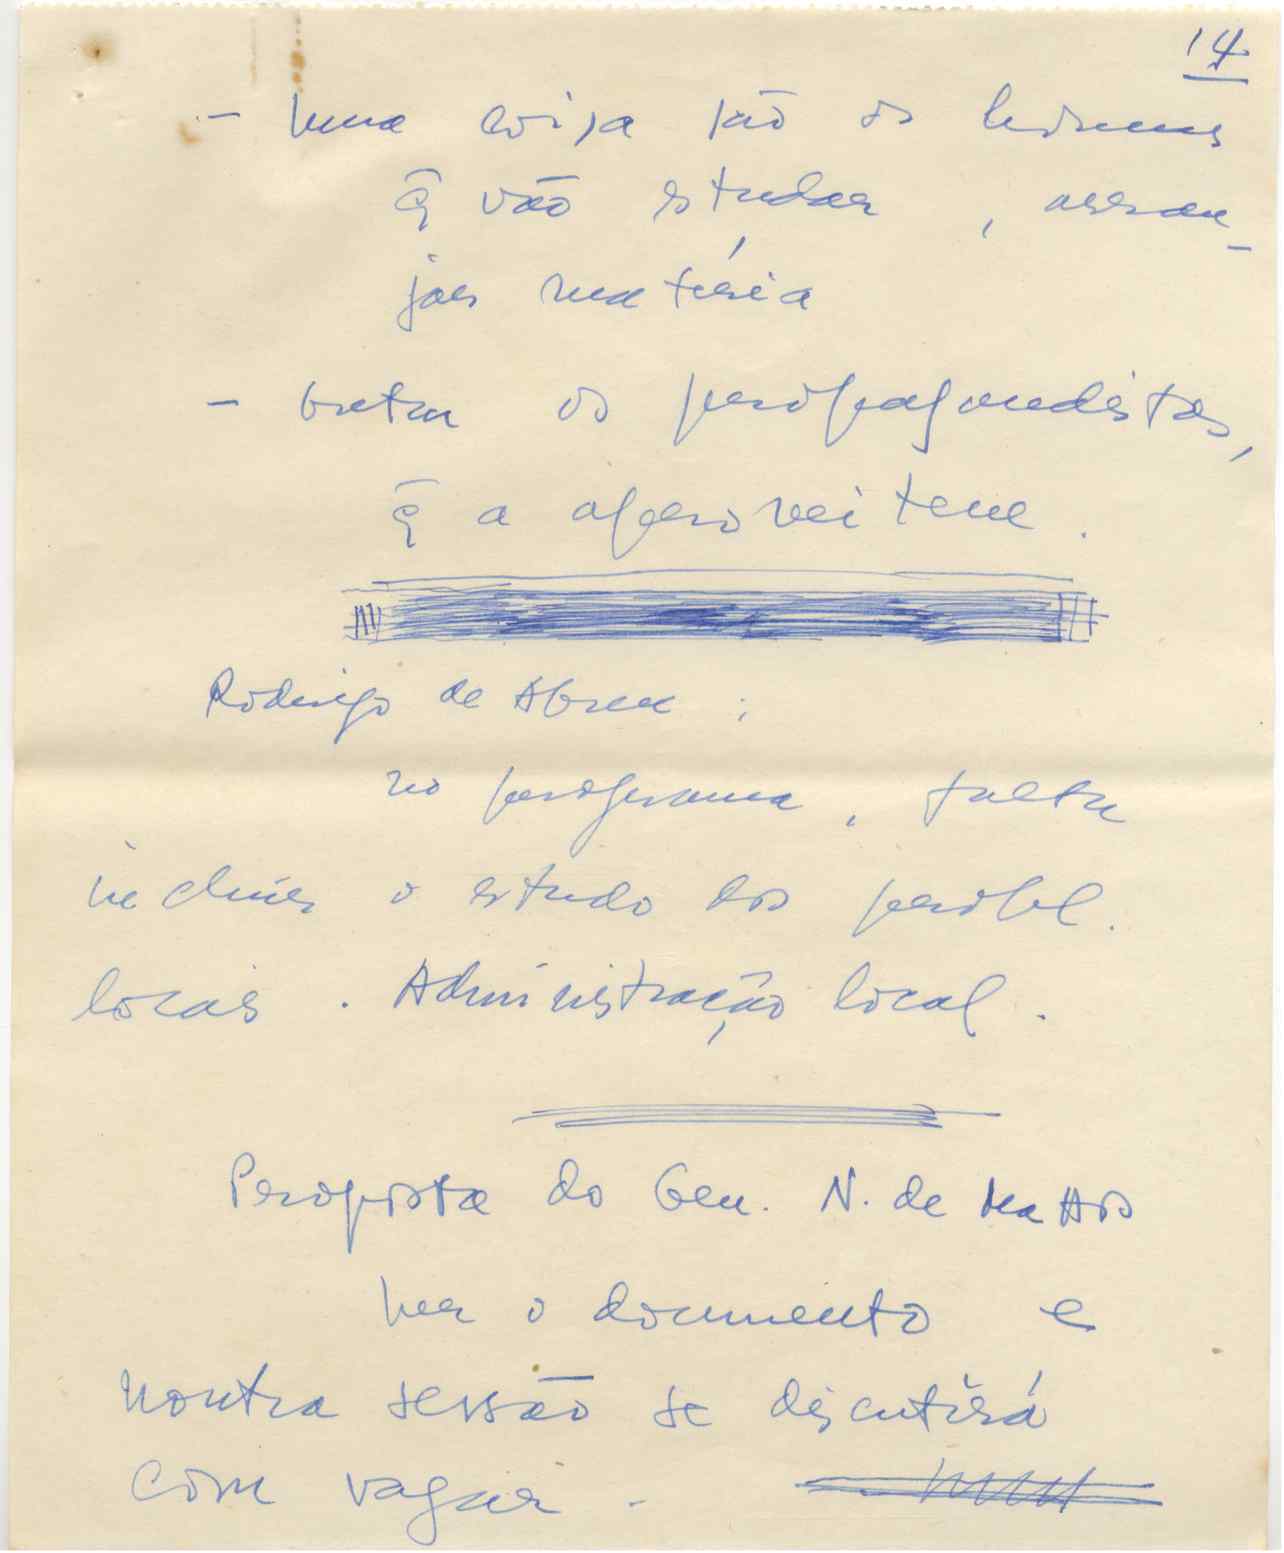 14
- Uma coisa são os homens
q̄ vão estudar, arran-
jar matéria
- outra os propagandistas,
q̄ a aproveitem.
Rodrigo de Abreu:
no programa, falta
incluir o estudo dos probl.
locais. Administração local.
Proposta do Gen. N. de Mattos
Ver o documento e
noutra sessão se discutirá
com vagar.